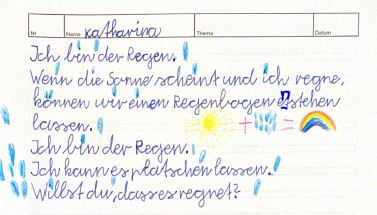 Nr Name Katharina Thema Datum
Ich bin der Regen.
Wenn die Sonne scheint und ich regne,
können wir einen Regenbogen entstehen
lassen.
+ =
Ich bin der Regen.
Ich kann es platschen lassen.
Willst du, dass es regnet?